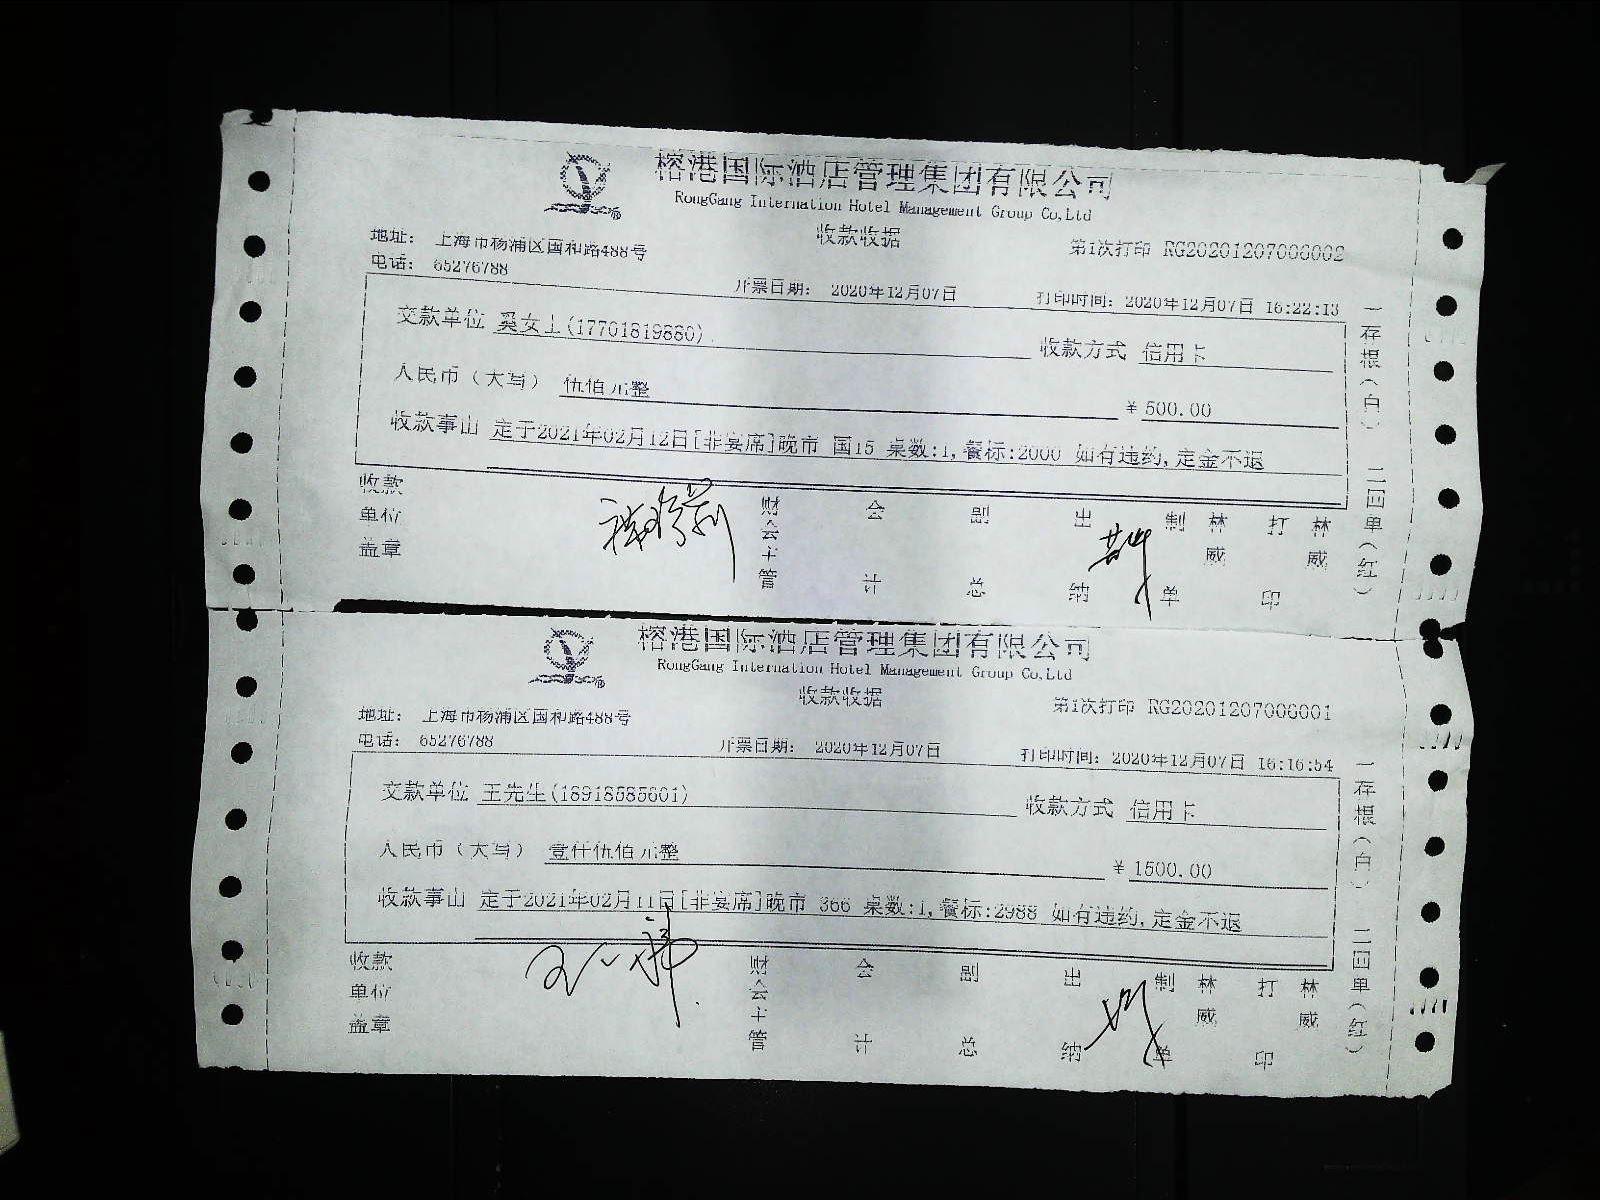 榕港国际酒店管理集团有限公司
RongGang Internation Hotel Management Group Co,Ltd
收款收据
地址： 上海市杨浦区国和路488号
第1次打印 RG20201207006002
电话： 65276788
开票日期： 2020年12月07日
打印时间：2020年12月07日 16:22:13
交款单位 奚女士(17701819880)
收款方式 信用卡
人民币（大写） 伍佰元整
￥500.00
收款事由 定于2021年02月12日[非宴席]晚市 国15 桌数:1,餐标:2000 如有违约,定金不退
一存根（白） 二回单（红）
收款单位盖章
财会主管
会计
副总
出纳
制单 林威
打印 林威
榕港国际酒店管理集团有限公司
RongGang Internation Hotel Management Group Co,Ltd
收款收据
地址： 上海市杨浦区国和路488号
第1次打印 RG20201207006001
电话： 65276788
开票日期： 2020年12月07日
打印时间：2020年12月07日 16:16:54
交款单位 王先生(18918585601)
收款方式 信用卡
人民币（大写） 壹仟伍佰元整
￥1500.00
收款事由 定于2021年02月11日[非宴席]晚市 366 桌数:1,餐标:2988 如有违约,定金不退
一存根（白） 二回单（红）
收款单位盖章
财会主管
会计
副总
出纳
制单 林威
打印 林威